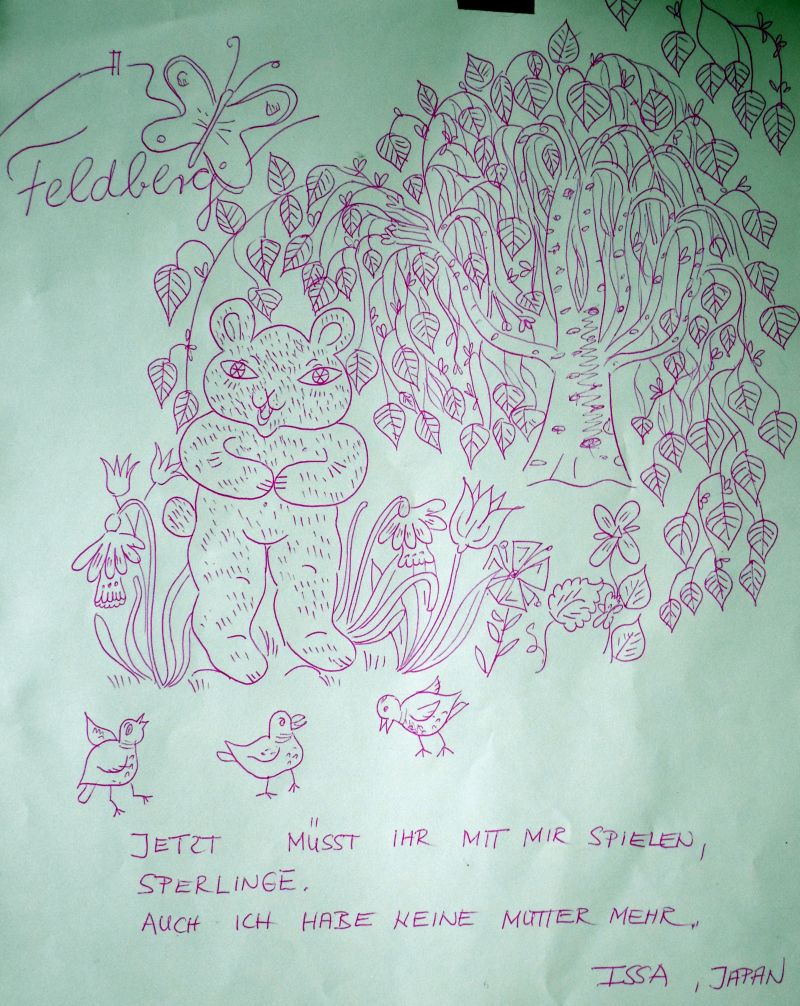 Feldberg
JETZT MÜSST IHR MIT MIR SPIELEN,
SPERLINGE.
AUCH ICH HABE KEINE MUTTER MEHR.
ISSA, JAPAN